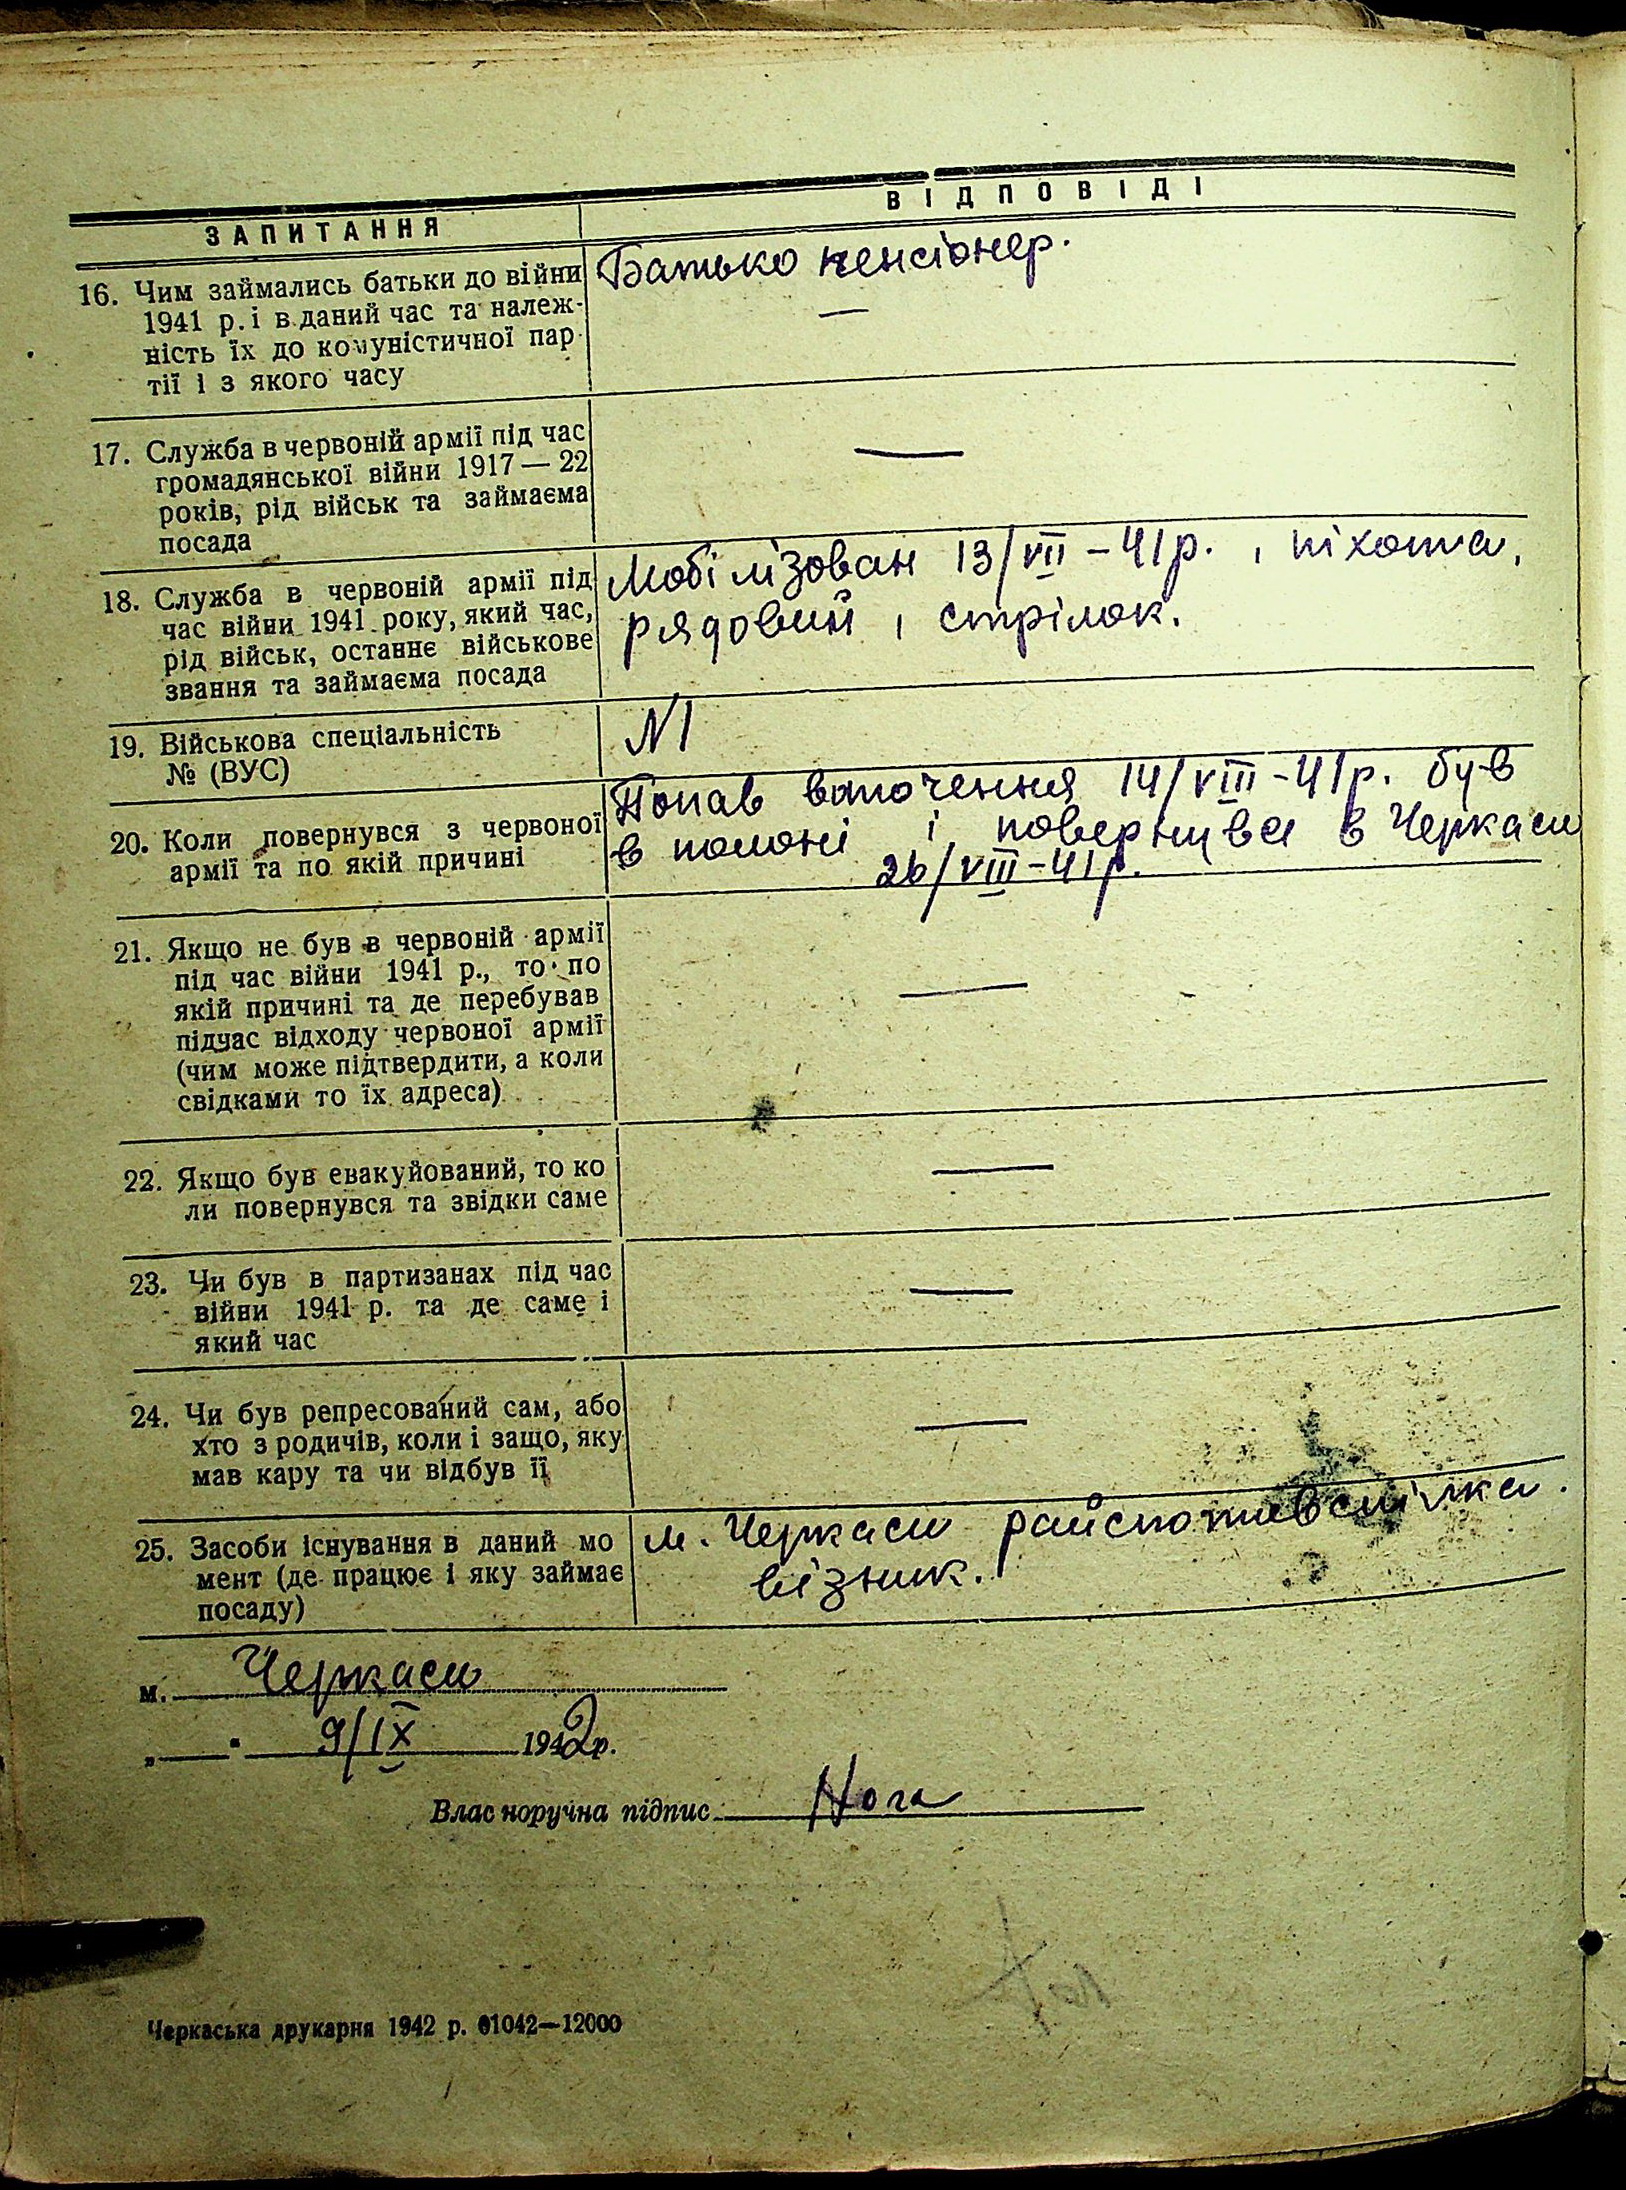 ЗАПИТАННЯ
ВІДПОВІДІ
16. Чим займались батьки до війни
1941 р. і в даний час та належ-
ність їх до комуністичної пар-
тії і з якого часу
Батько пенсіонер.
—
17. Служба в червоній армії під час
громадянської війни 1917 — 22
років, рід військ та займаєма
посада
—
18. Служба в червоній армії під
час війни 1941 року, який час,
рід військ, останнє військове
звання та займаєма посада
Мобілізован 13/VII – 41 р. , піхота,
рядовий , стрілок.
19. Військова спеціальність
№ (ВУС)
N1
20. Коли повернувся з червоної
армії та по якій причині
Попав воточення 14/VIII – 41 р. був
в полоні і повернувся в Черкаси
26/VIII – 41 р.
21. Якщо не був в червоній армії
під час війни 1941 р., то по
якій причині та де перебував
підчас відходу червоної армії
(чим може підтвердити, а коли
свідками то їх адреса)
—
22. Якщо був евакуйований, то ко
ли повернувся та звідки саме
—
23. Чи був в партизанах під час
війни 1941 р. та де саме і
який час
—
24. Чи був репресований сам, або
хто з родичів, коли і защо, яку
мав кару та чи відбув її
—
25. Засоби існування в даний мо
мент (де працює і яку займає
посаду)
м. Черкаси райспоживспілка.
візник.
м. Черкаси
„ “ 9/IX 1942 р.
Власноручна підпис Нога
Черкаська друкарня 1942 р. 01042—12000